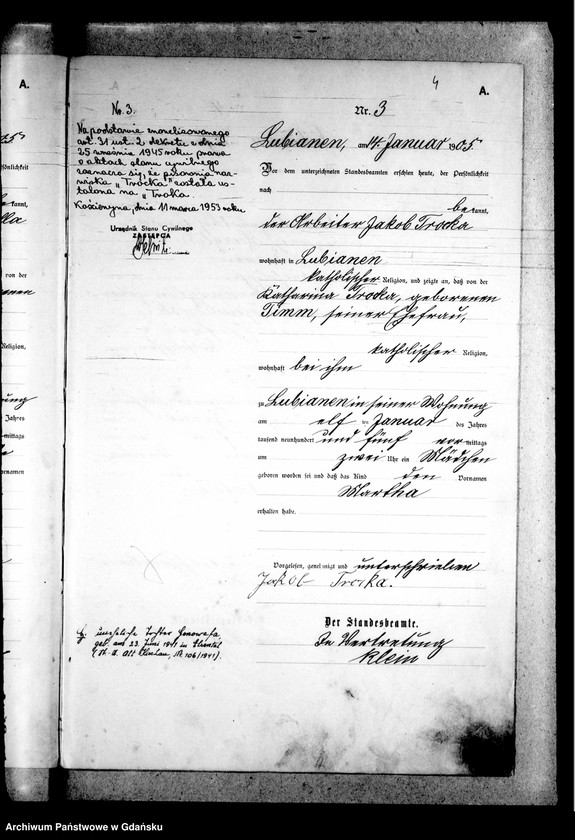 4
A.
A.
Nr. 3.
Nr. 3
Na podstawie znowelizowanego
art. 31 ust. 2 dekretu z dnia
25 września 1945 roku prawo
o aktach stanu cywilnego
zaznacza się, że pisownia naz-
wiska „Trocka" została us-
talona na „Troka.
Kościerzyna, dnia 11 marca 1953 roku
Urzędnik Stanu Cywilnego
ZASTĘPCA
Lubianen, am 14. Januar 1905
Vor dem unterzeichneten Standesbeamten erschien heute, der Persönlichkeit
nach
bekannt,
der Arbeiter Jakob Trocka
wohnhaft in Lubianen
katholischer Religion, und zeigte an, daß von der
Katharina Trocka, geborenen
Timm, seiner Ehefrau,
katholischer Religion,
wohnhaft bei ihm
zu Lubianen in seiner Wohnung
am elf ten Januar des Jahres
tausend neunhundert und fünf vormittags
um zwei Uhr ein Mädchen
geboren worden sei und daß das Kind den Vornamen
Martha
erhalten habe.
Vorgelesen, genehmigt und unterschrieben
Jakob Trocka.
Der Standesbeamte.
In Vertretung
Klein
uneheliche Tochter Genowefa
geb. am 23. Juni 1941 in
Nr. 106/1941).
Archiwum Państwowe w Gdańsku